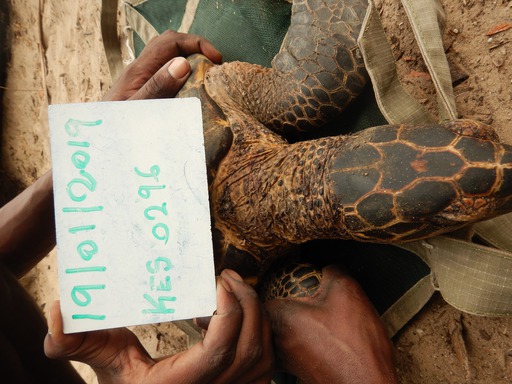 19/01/2019
KES 0296